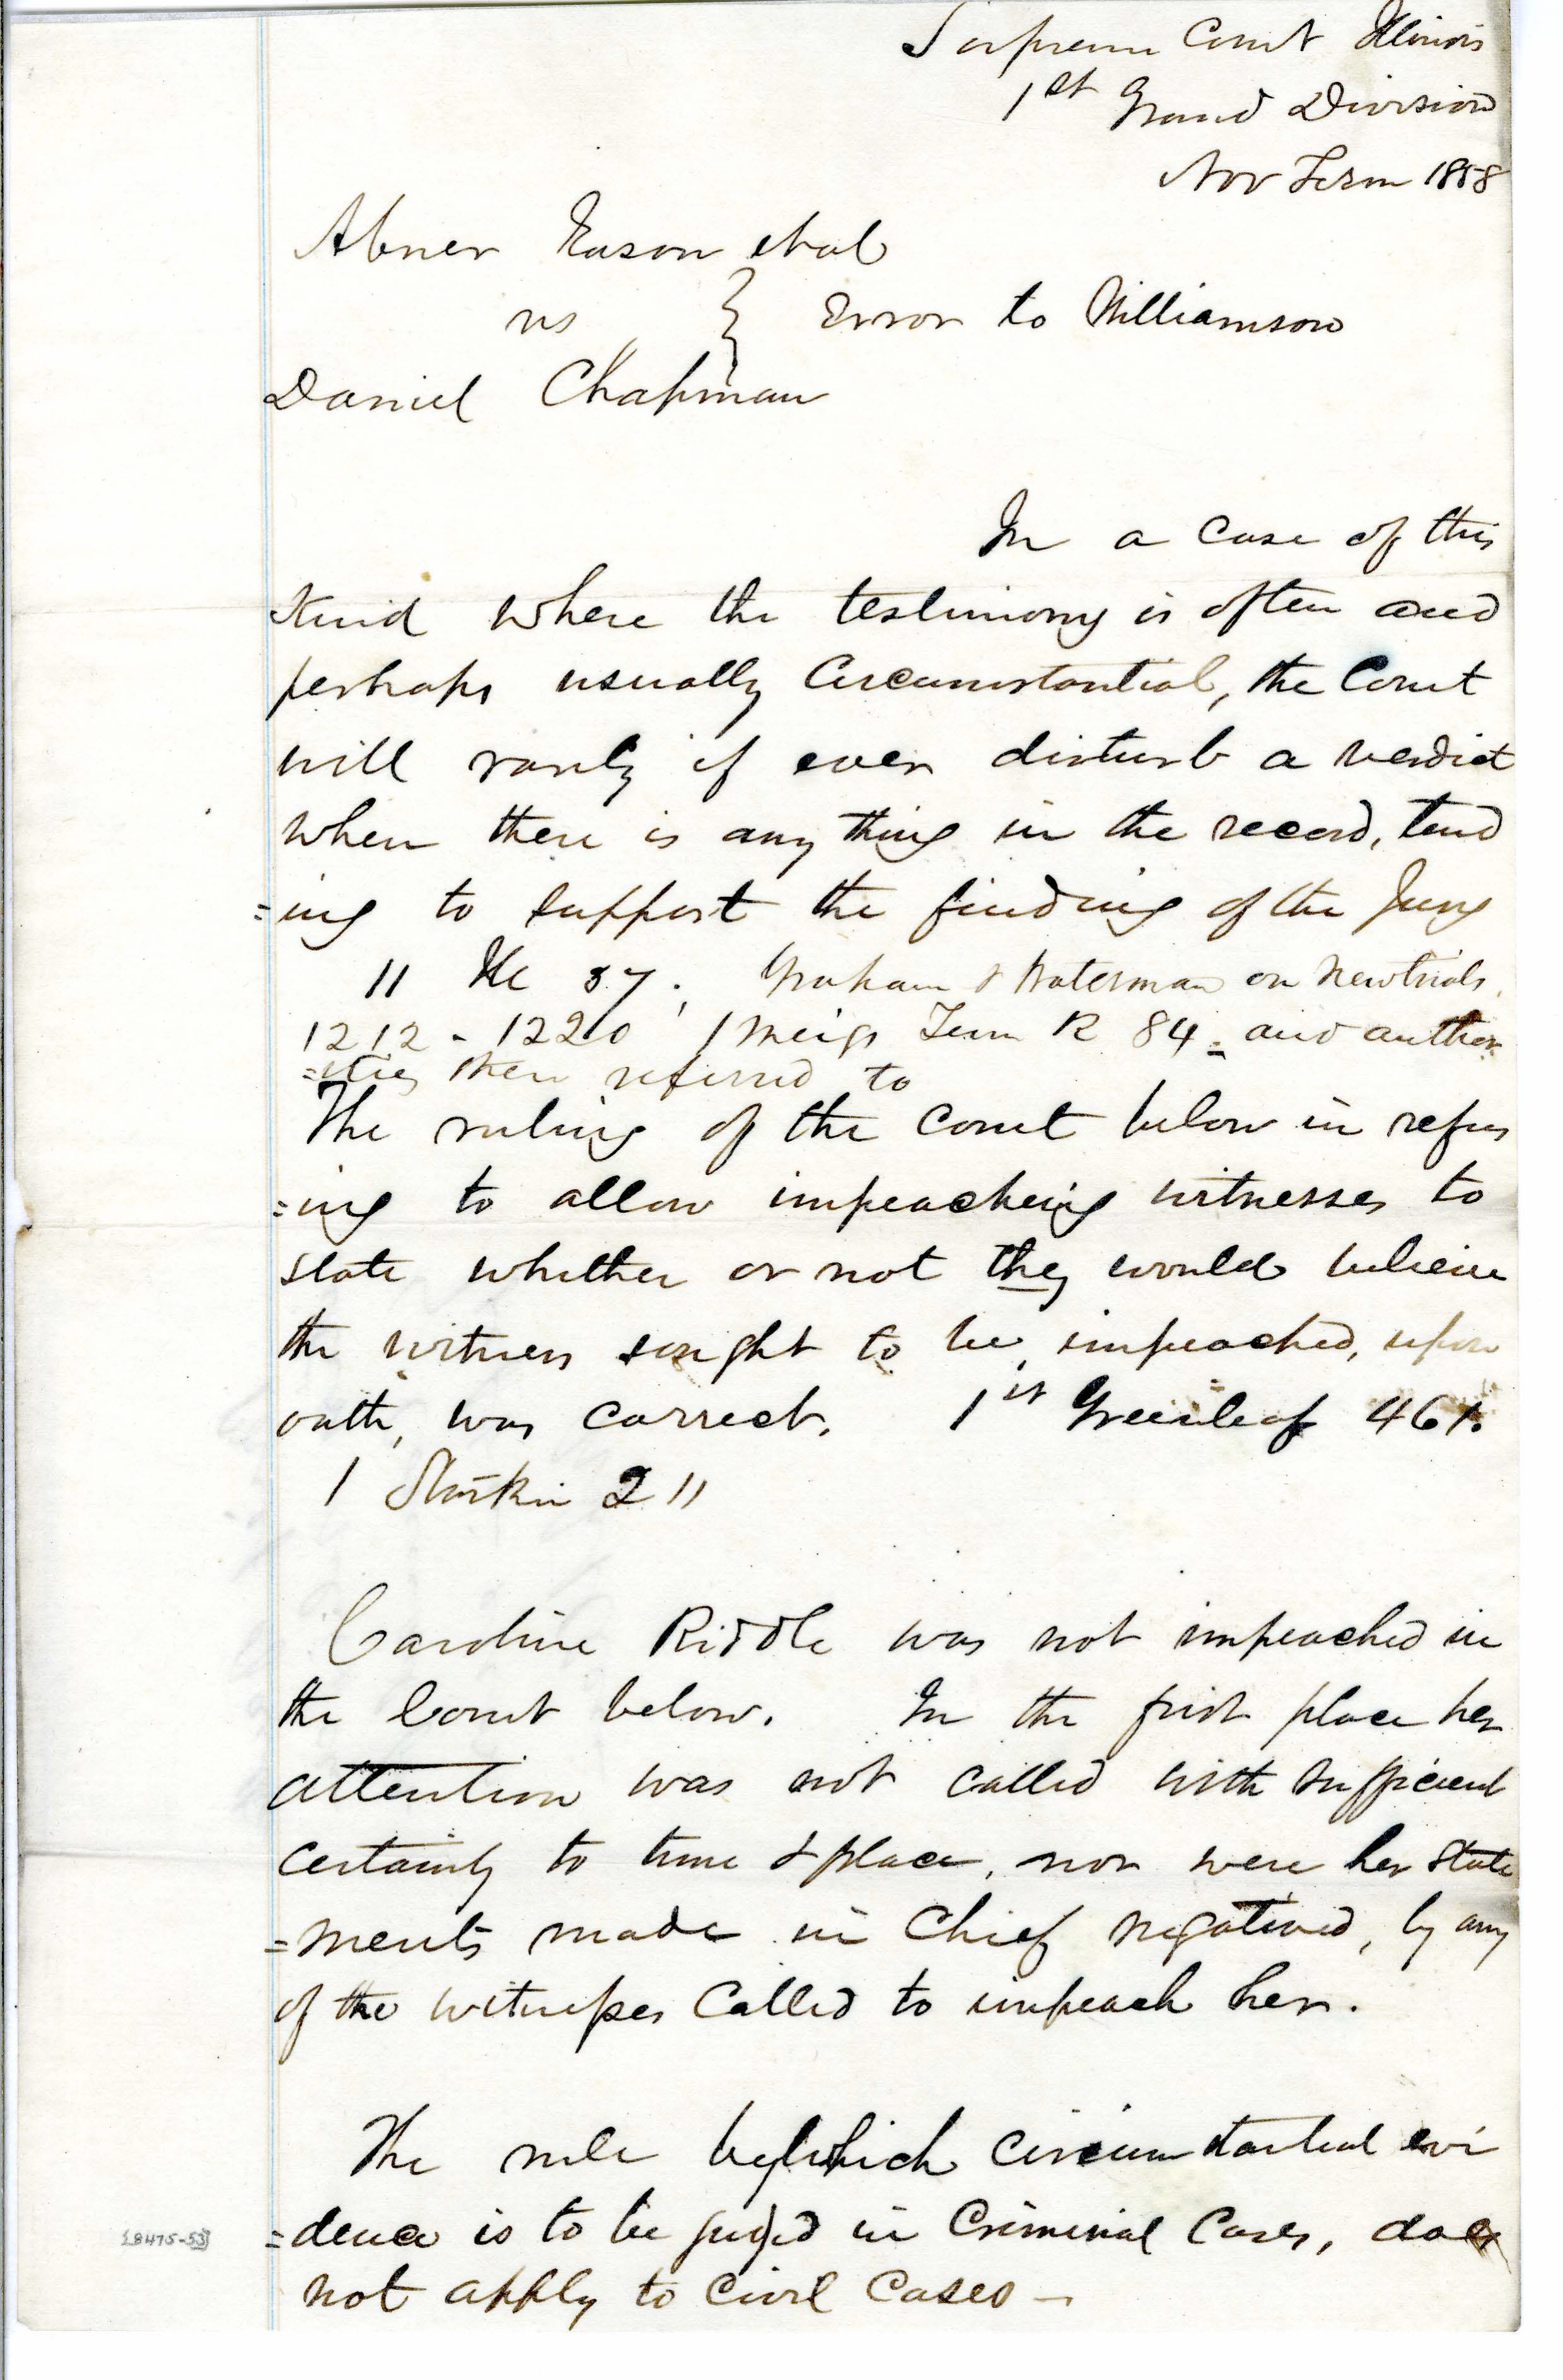 Supreme Court Illinois
1st Grand Division
Nov Term 1858
Abner Eason et al
vs } Error to Williamson
Daniel Chapman
In a case of this
kind where the testimony is often and
perhaps usually Circumstantial, the Court
will rarely if ever disturb a verdict
when there is any thing in the record, tend
=ing to support the finding of the Jury
11 Ills 57; Graham & Waterman on New trials,
1212 - 1220, 1 Meigs Tenn R 84 = and author
=ities there referred to
The ruling of the Court below in refus
=ing to allow impeaching witnesses to
state whether or not they would believe
the witness sought to be impeached, upon
oath, was correct. 1st Greenleaf 461.
1 Starkie 211
Caroline Riddle was not impeached in
the Court below. In the first place her
attention was not called with sufficient
certainty to time & place, nor were her state
=ments made in Chief negatived, by any
of the witnesses Called to impeach her.
The rule by which circumstantial evi
=dence is to be judged in Criminal Cases, does
not apply to Civil Cases —
[8475-53]